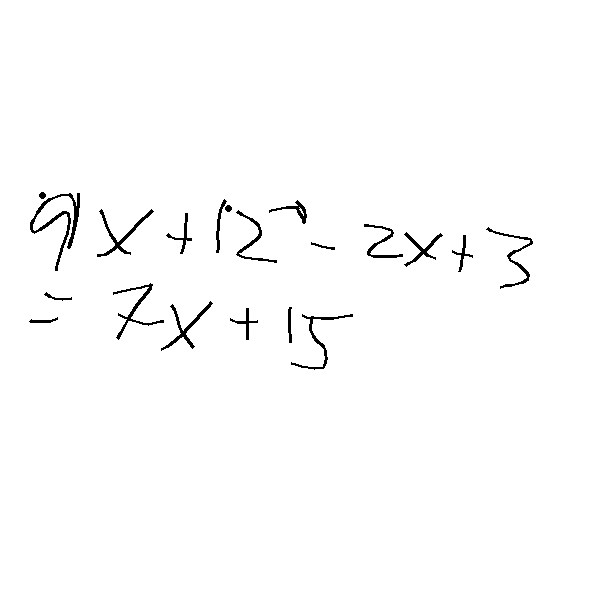 9x + 12 - 2x + 3
= 7x + 15